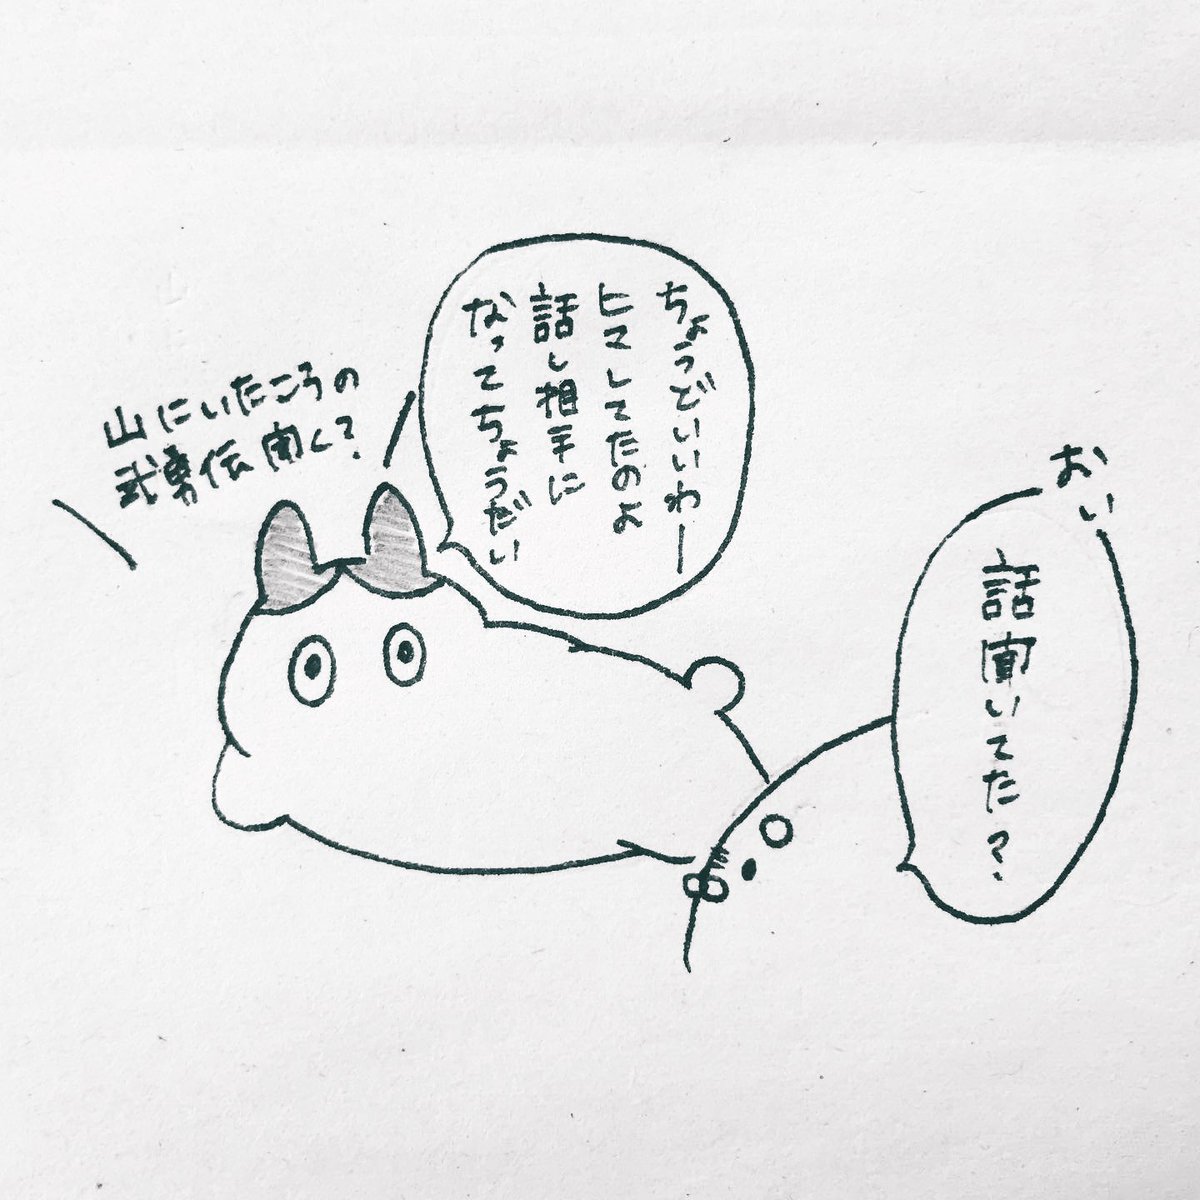 おい
話聞いてた?
ちょうどいいわー
ヒマしてたのよ
話し相手に
なってちょうだい
山にいたころの
武勇伝聞く?